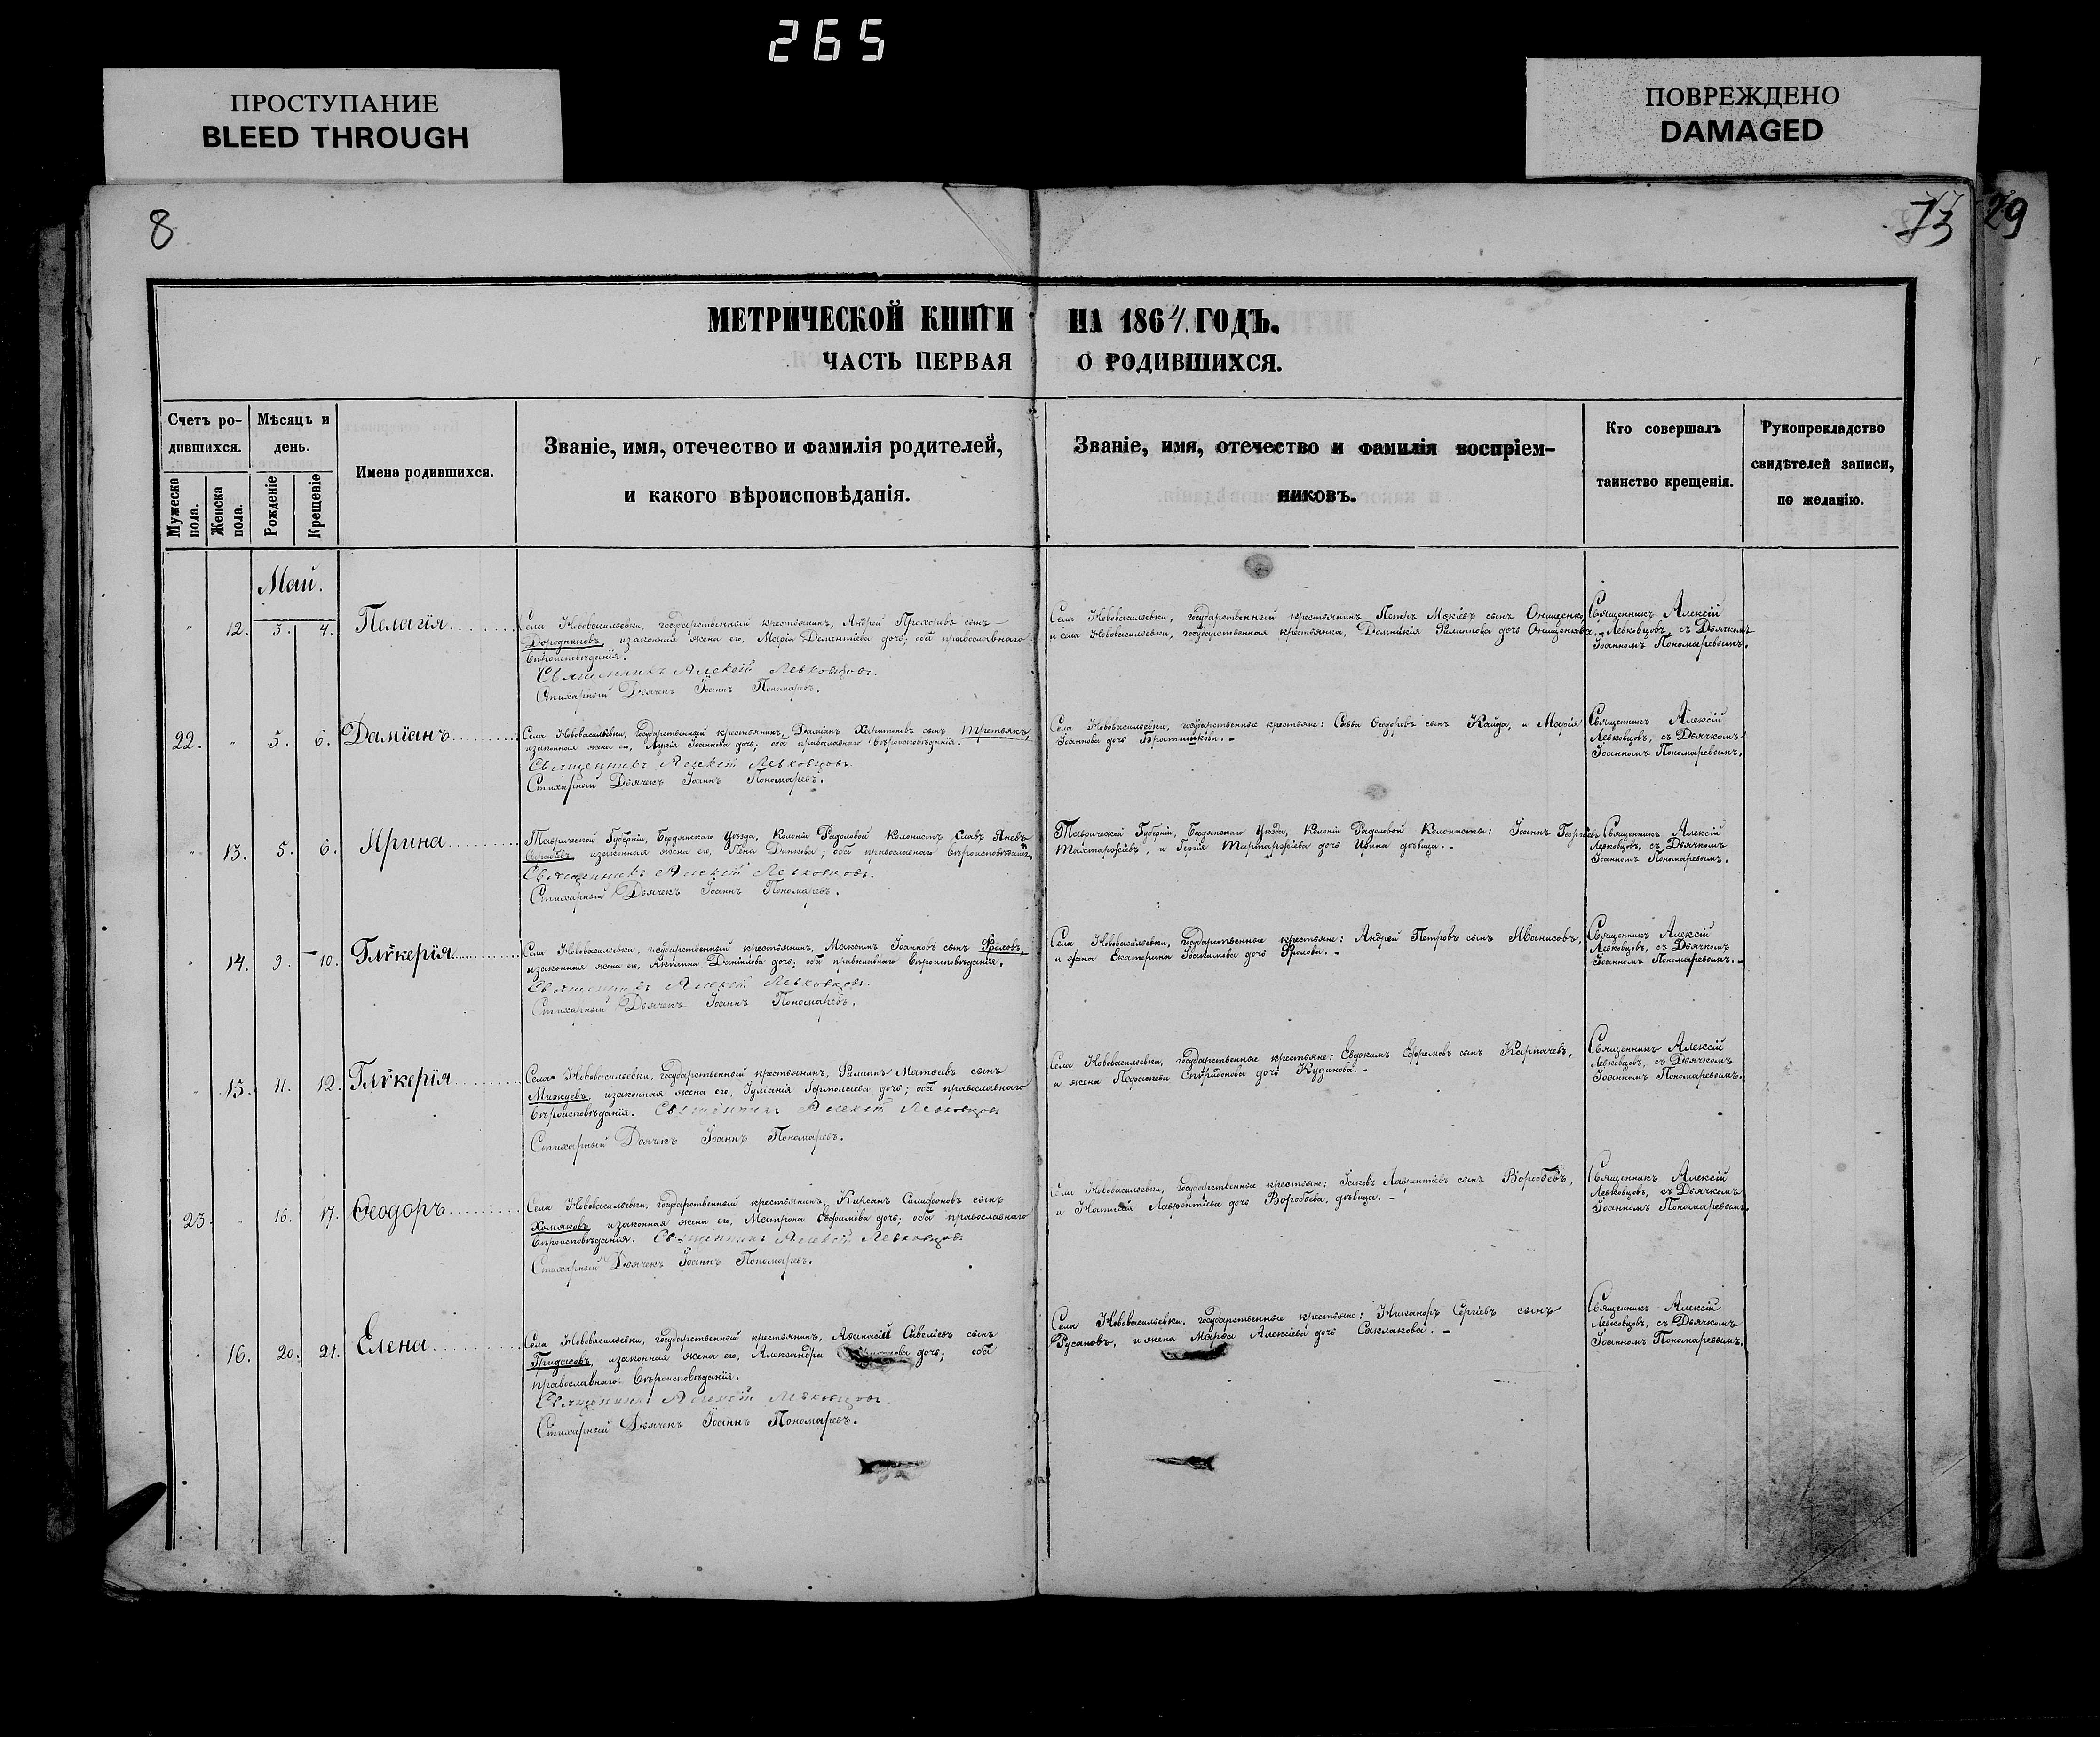 265
ПРОСТУПАНИЕ
BLEED THROUGH
ПОВРЕЖДЕНО
DAMAGED
8
73 29
МЕТРИЧЕСКОЙ КНИГИ НА 1864 ГОДЪ.
ЧАСТЬ ПЕРВАЯ О РОДИВШИХСЯ.
Счетъ ро-
дившихся.
Мужеска пола.
Женска пола.
Мѣсяцъ и
день.
Рожденіе
Крещеніе
Имена родившихся.
Званіе, имя, отечество и фамилія родителей,
и какого вѣроисповѣданія.
Званіе, имя, отечество и фамилія воспріем-
никовъ.
Кто совершалъ
таинство крещенія.
Рукоприкладство
свидѣтелей записи,
по желанію.
Май.
" 12. 3. 4. Пелагія
Села Нововасильевки, государственный крестьянинъ, Андрей Прохоровъ сынъ
изаконная жена его, Марія Дементіева дочь; оба православнаго
вѣроисповѣданія.
Священникъ Алексій Левковцовъ.
Стихарный Дьячекъ Іоаннъ Пономаревъ.
Села Нововасильевки, государственный крестьянинъ Петръ Мокіевъ сынъ Онищенко
и села Нововасильевки, государственная крестьянка, Домникія Филиппова дочь Онищенкова.
Священникъ Алексій
Левковцовъ, съ Дьячкомъ
Іоанномъ Пономаревымъ.
22. " 5. 6. Даміанъ
Села Нововасильевки, государственный крестьянинъ, Даміанъ Харитоновъ сынъ Третьякъ,
изаконная жена его, Іоаннова дочь; оба православнаго вѣроисповѣданія.
Священникъ Алексій Левковцовъ.
Стихарный Дьячекъ Іоаннъ Пономаревъ.
Села Нововасильевки, государственные крестьяне: Савва Ѳеодоровъ сынъ Кайда, и Марія
Іоаннова дочь
Священникъ Алексій
Левковцовъ, съ Дьячкомъ
Іоанномъ Пономаревымъ.
" 13. 5. 6. Ирина
Таврической Губерніи, Бердянскаго Уѣзда, Колоніи Радоловой Колонистъ Славъ Яневъ
изаконная жена его, Пена Динкова; оба православнаго вѣроисповѣданія.
Священникъ Алексій Левковцовъ.
Стихарный Дьячекъ Іоаннъ Пономаревъ.
Таврической Губерніи, Бердянскаго Уѣзда, Колоніи Радоловой Колонисты: Іоаннъ Георгіевъ
дочь Ирина дѣвица.
Священникъ Алексій
Левковцовъ, съ Дьячкомъ
Іоанномъ Пономаревымъ.
" 14. 9. 10. Глѵкерія
Села Нововасильевки, государственный крестьянинъ, Максимъ Іоанновъ сынъ Фроловъ,
изаконная жена его, Акилина Даніилова дочь; оба православнаго вѣроисповѣданія.
Священникъ Алексій Левковцовъ.
Стихарный Дьячекъ Іоаннъ Пономаревъ.
Села Нововасильевки, государственные крестьяне: Андрей Петровъ сынъ Иванисовъ,
и жена Екатерина Іоакимова дочь Фролова.
Священникъ Алексій
Левковцовъ, съ Дьячкомъ
Іоанномъ Пономаревымъ.
" 15. 11. 12. Глѵкерія
Села Нововасильевки, государственный крестьянинъ, Филиппъ Матѳеевъ сынъ
изаконная жена его, Іуліанія Гермолаева дочь; оба православнаго
вѣроисповѣданія. Священникъ Алексій Левковцовъ
Стихарный Дьячекъ Іоаннъ Пономаревъ.
Села Нововасильевки, государственные крестьяне: Евдокимъ Ефремовъ сынъ Карпачевъ,
и жена Параскева Спѵридонова дочь Кудинова.
Священникъ Алексій
Левковцовъ, съ Дьячкомъ
Іоанномъ Пономаревымъ.
23. " 16. 17. Ѳеодоръ
Села Нововасильевки, государственный крестьянинъ, Кирсанъ сынъ
Хомяковъ, изаконная жена его, Матрона Евфимова дочь; оба православнаго
вѣроисповѣданія. Священникъ Алексій Левковцовъ
Стихарный Дьячекъ Іоаннъ Пономаревъ.
Села Нововасильевки, государственные крестьяне: Іаковъ Лаврентіевъ сынъ Воробьевъ,
и Наталія Лаврентіева дочь Воробьева, дѣвица.
Священникъ Алексій
Левковцовъ, съ Дьячкомъ
Іоанномъ Пономаревымъ.
" 16. 20. 21. Елена
Села Нововасильевки, государственный крестьянинъ, Аѳанасій Савеліевъ сынъ
изаконная жена его, Александра дочь; оба
православнаго вѣроисповѣданія.
Священникъ Алексій Левковцовъ.
Стихарный Дьячекъ Іоаннъ Пономаревъ.
Села Нововасильевки, государственные крестьяне: Никаноръ Сергіевъ сынъ
Русановъ, и жена Марѳа Алексіева дочь Саклакова.
Священникъ Алексій
Левковцовъ, съ Дьячкомъ
Іоанномъ Пономаревымъ.